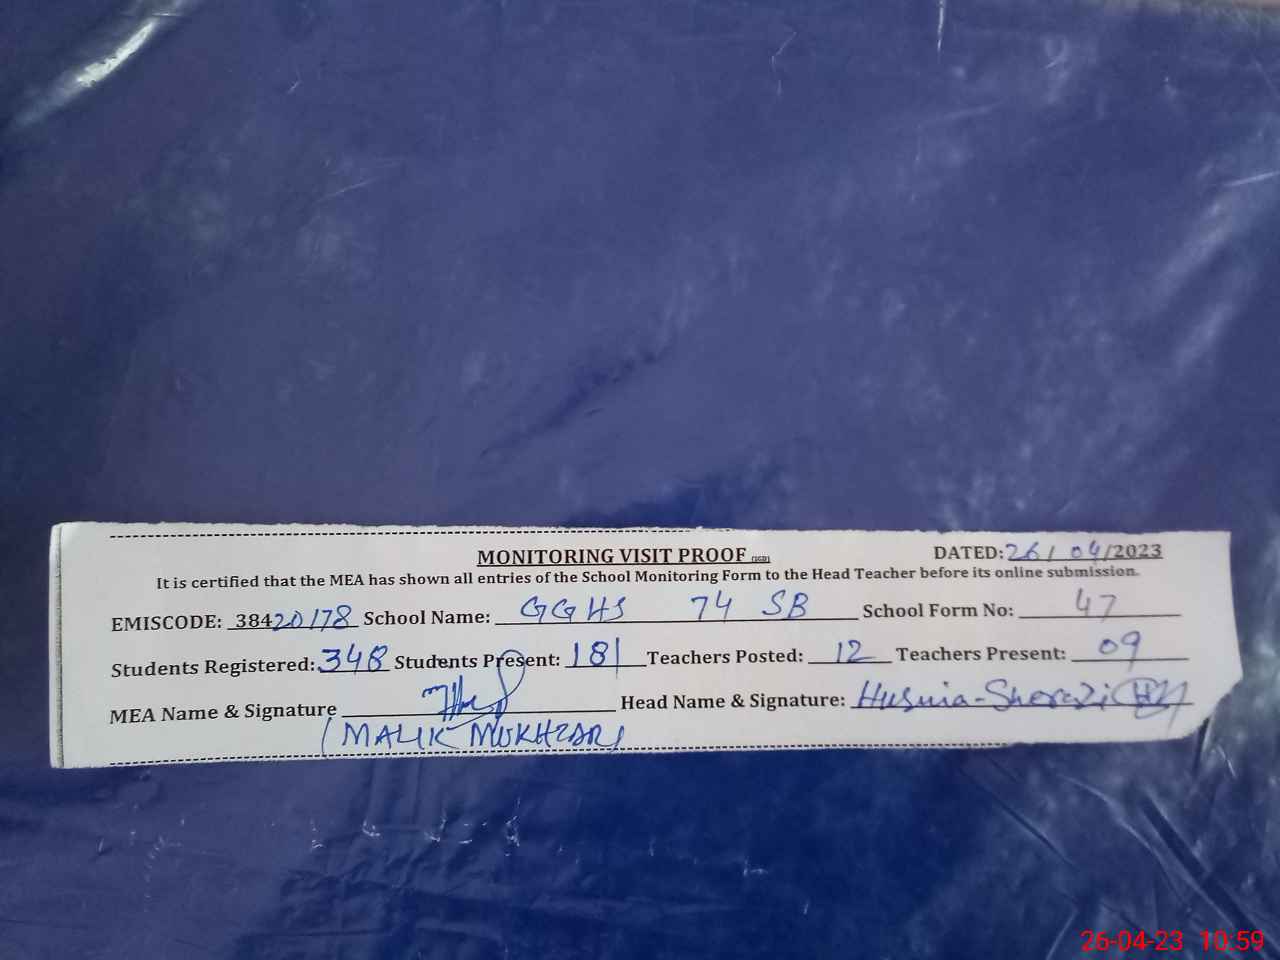 MONITORING VISIT PROOF DATED: 26/04/2023
It is certified that the MEA has shown all entries of the School Monitoring Form to the Head Teacher before its online submission.
EMISCODE: 38420178 School Name: GGHS 74 SB School Form No: 47
Students Registered: 348 Students Present: 181 Teachers Posted: 12 Teachers Present: 09
MEA Name & Signature Head Name & Signature: Husnia-Sherazi
(MALIK MUKHTAR)
26-04-23 10:59